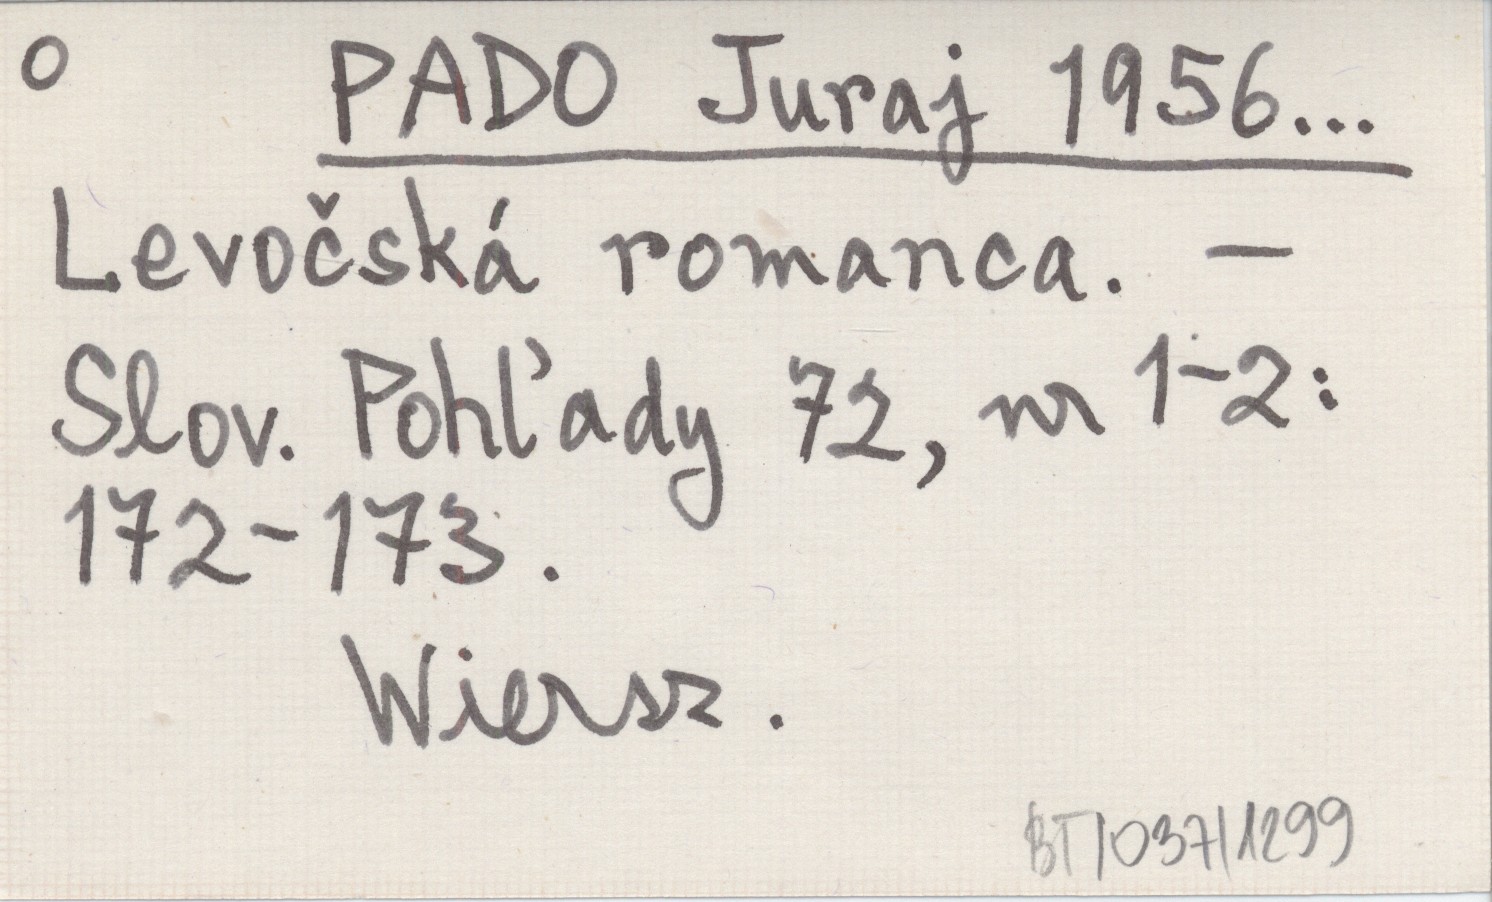 o PADO Juraj 1956...
Levočská romanca. –
Slov. Pohľady 72, nr 1-2:
172-173.
Wiersz.
BT/037/1299